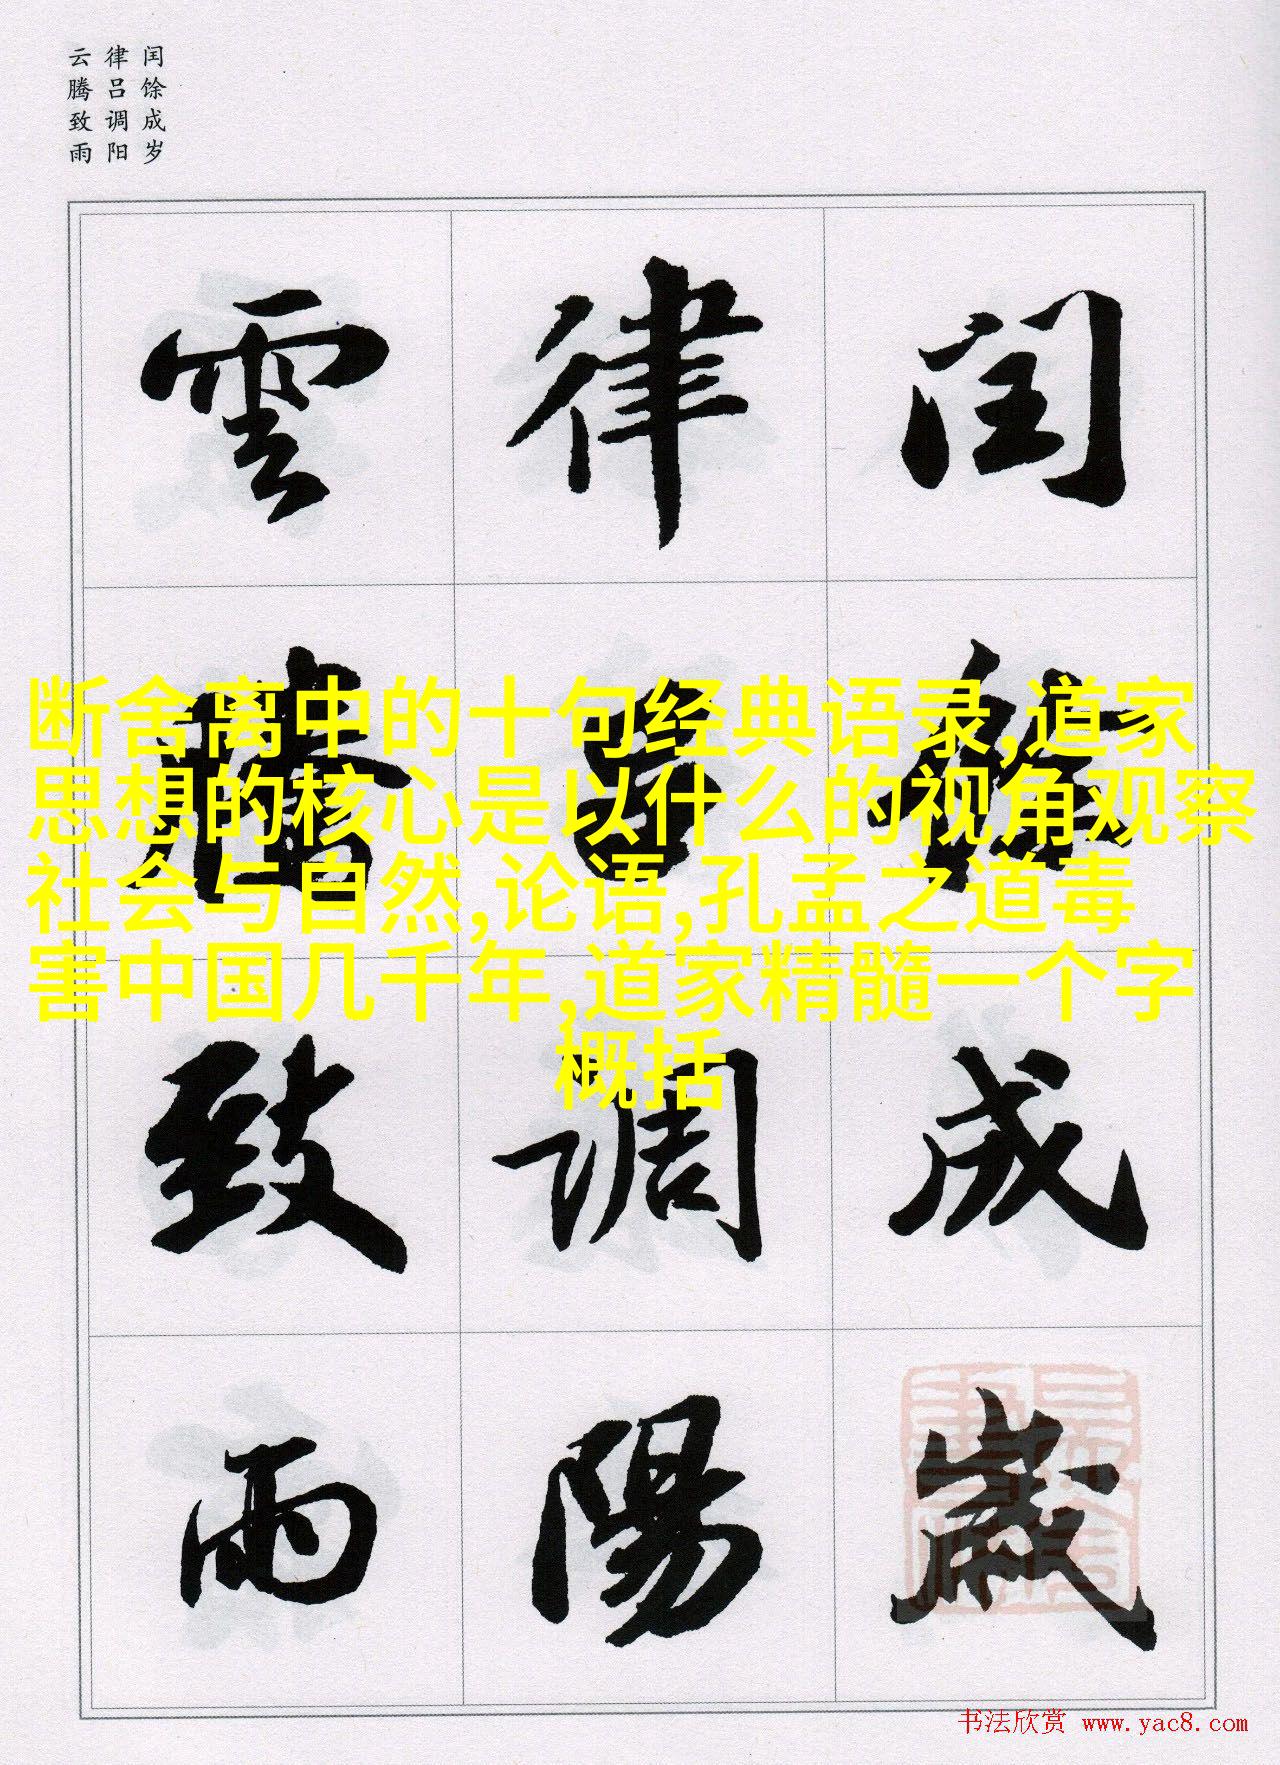 闰馀成岁
律吕调阳
云腾致雨
閏餘成歲
律吕調陽
雲騰致雨
断舍离中的十句经典语录,道家
思想的核心是以什么的视角观察
社会与自然,论语,孔孟之道毒
害中国几千年,道家精髓一个字
概括
书法欣赏 www.yac8.com